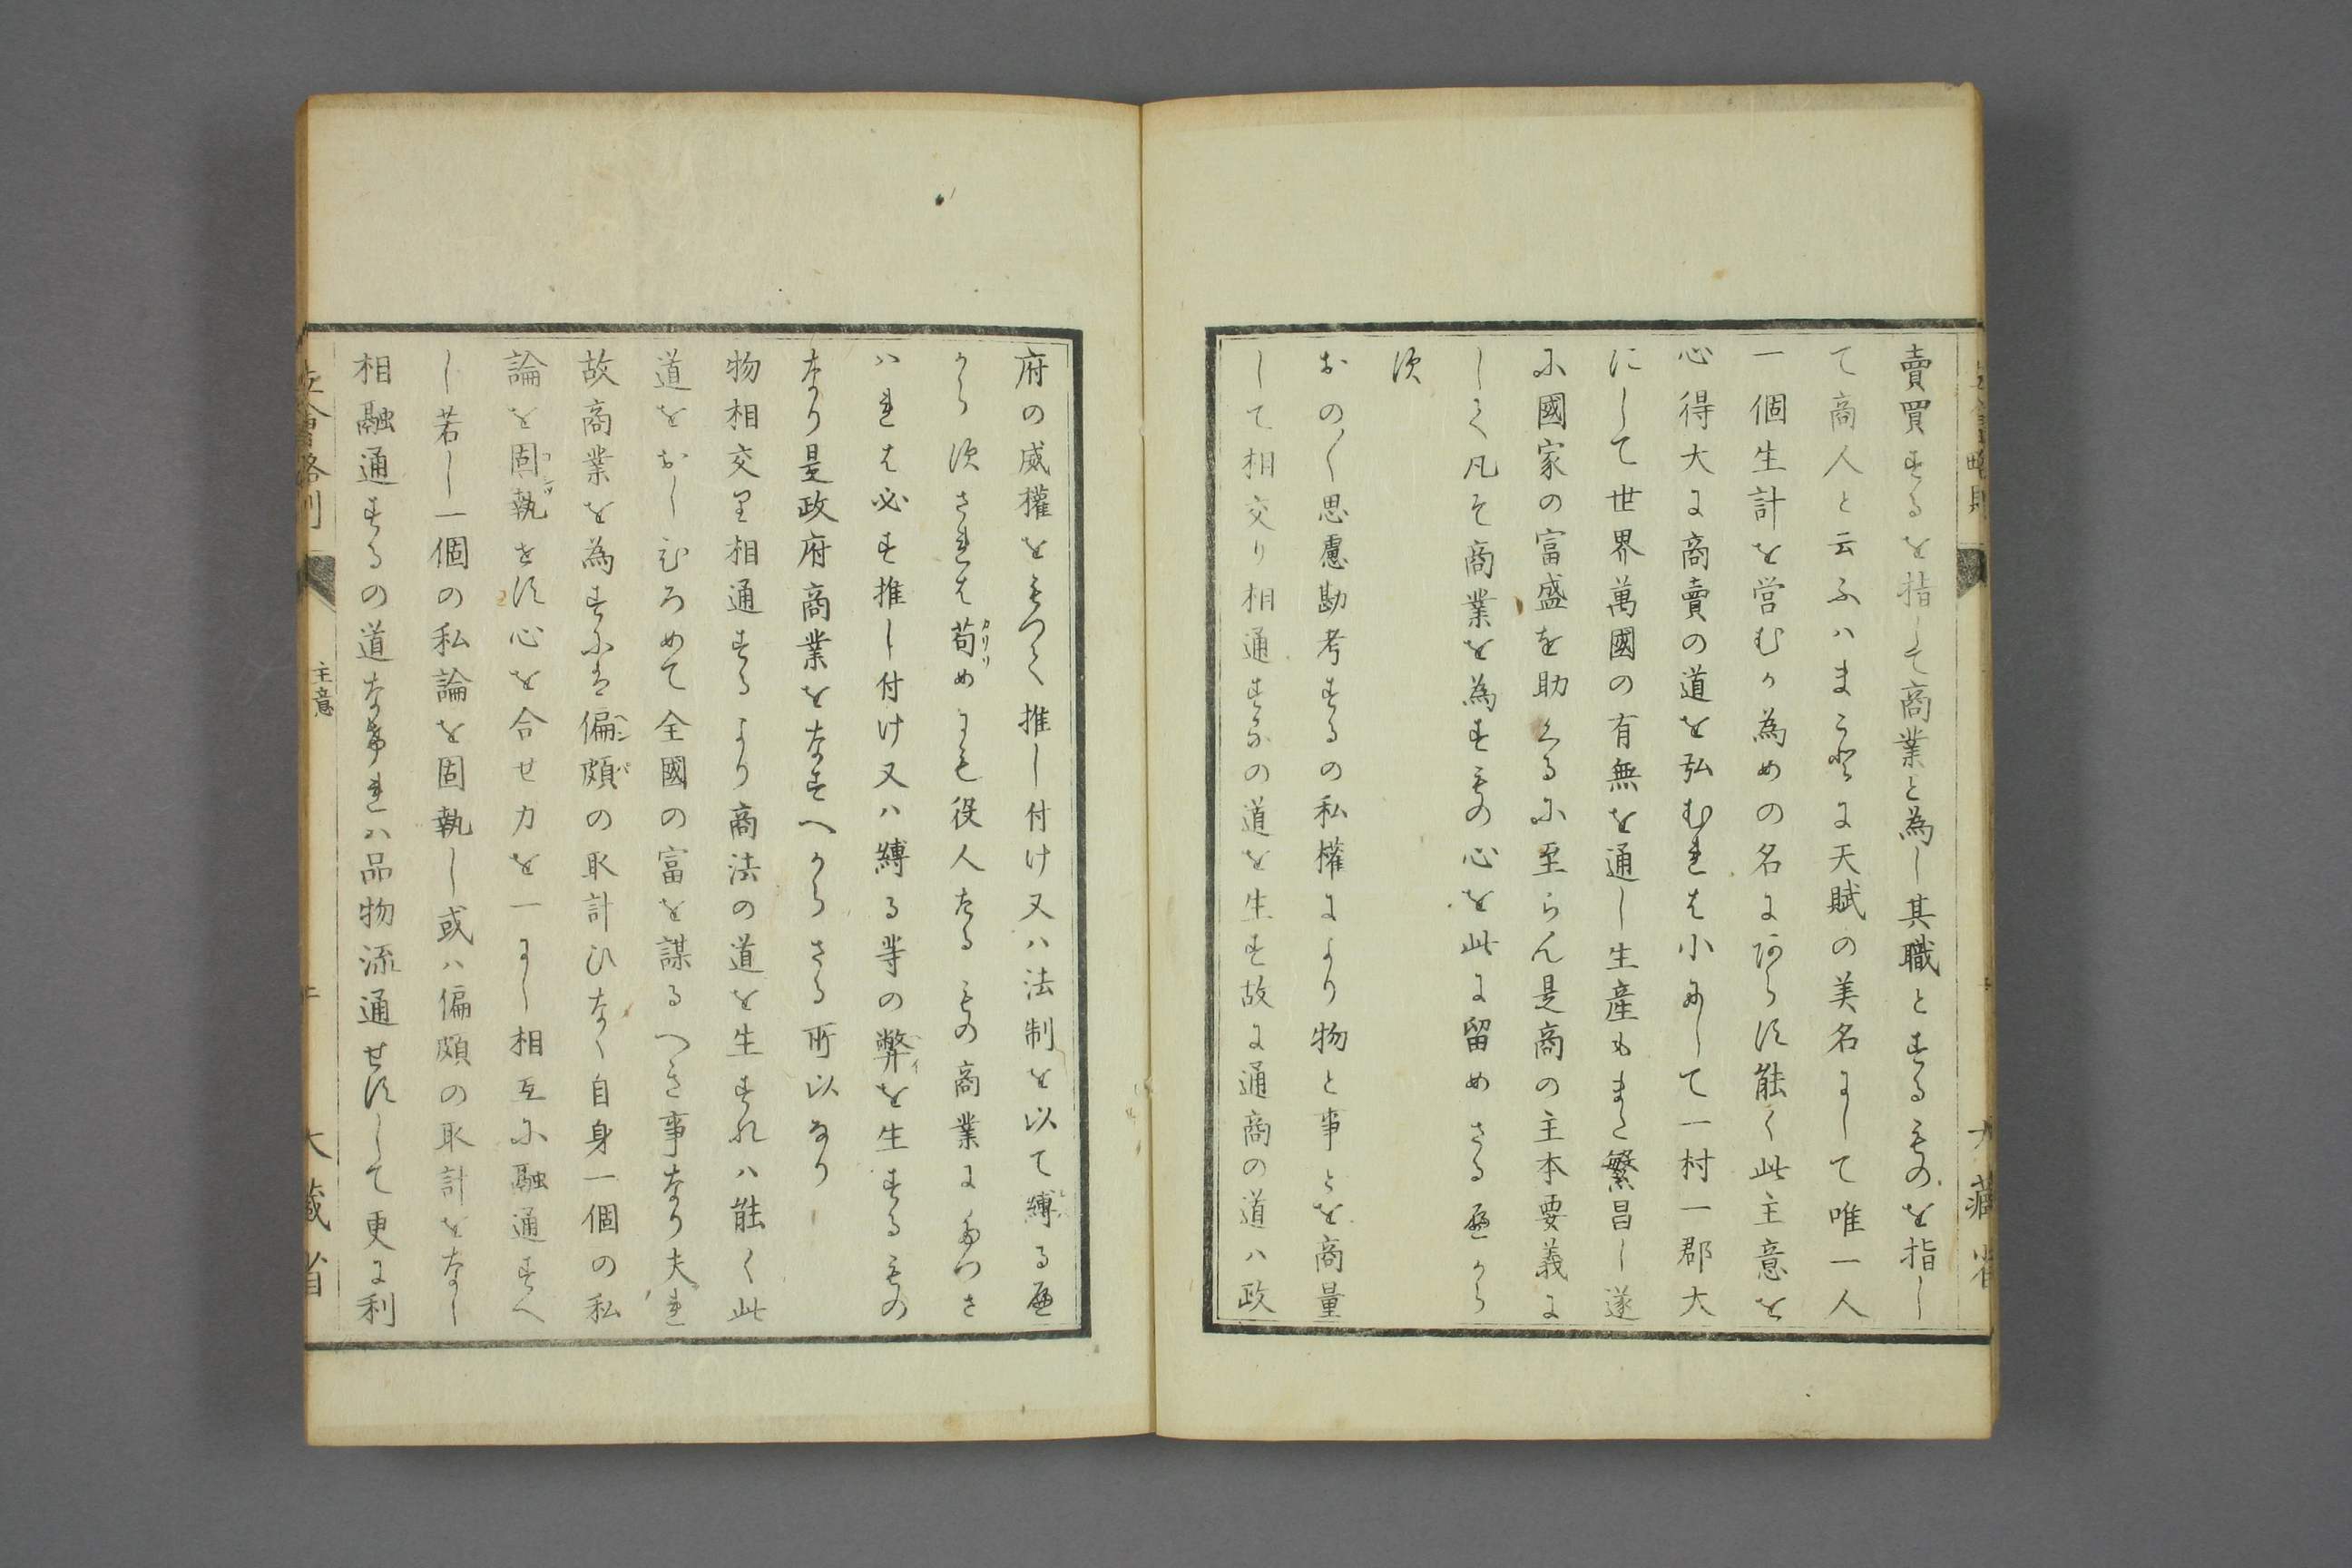 立會略則
大藏省
賣買するを指して商業と為し其職とするものを指し
て商人と云ふハまことに天賦の美名にして唯一人
一個生計を営むか為めの名にあらす能く此主意を
心得大に商賣の道を弘むれは小にして一村一郡大
にして世界萬國の有無を通し生産もまた繁昌し遂
に國家の富盛を助くるに至らん是商の主本要義に
しく凡そ商業を為すもの心を此に留めさるへから
す
おの〱思慮勘考するの私權により物と事とを商量
して相交り相通するの道を生す故に通商の道ハ政
府の威權をもつて推し付け又ハ法制を以て縛るへ
からすされは苟カリソめにも役人たるもの商業にたつさ
ハれは必す推し付け又ハ縛る等の弊を生するもの
なり是政府商業をなすへからさる所以なり
物相交里相通するより商法の道を生すれハ能く此
道をおしひろめて全國の富を謀るへき事なり夫れ
故商業を為すには偏ヘン頗パの取計ひなく自身一個の私
論を固コ執シツせす心を合せ力を一にし相互に融通すへ
し若し一個の私論を固執し或ハ偏頗の取計をなし
相融通するの道なけれハ品物流通せすして更に利
立會略則
主意
大藏省